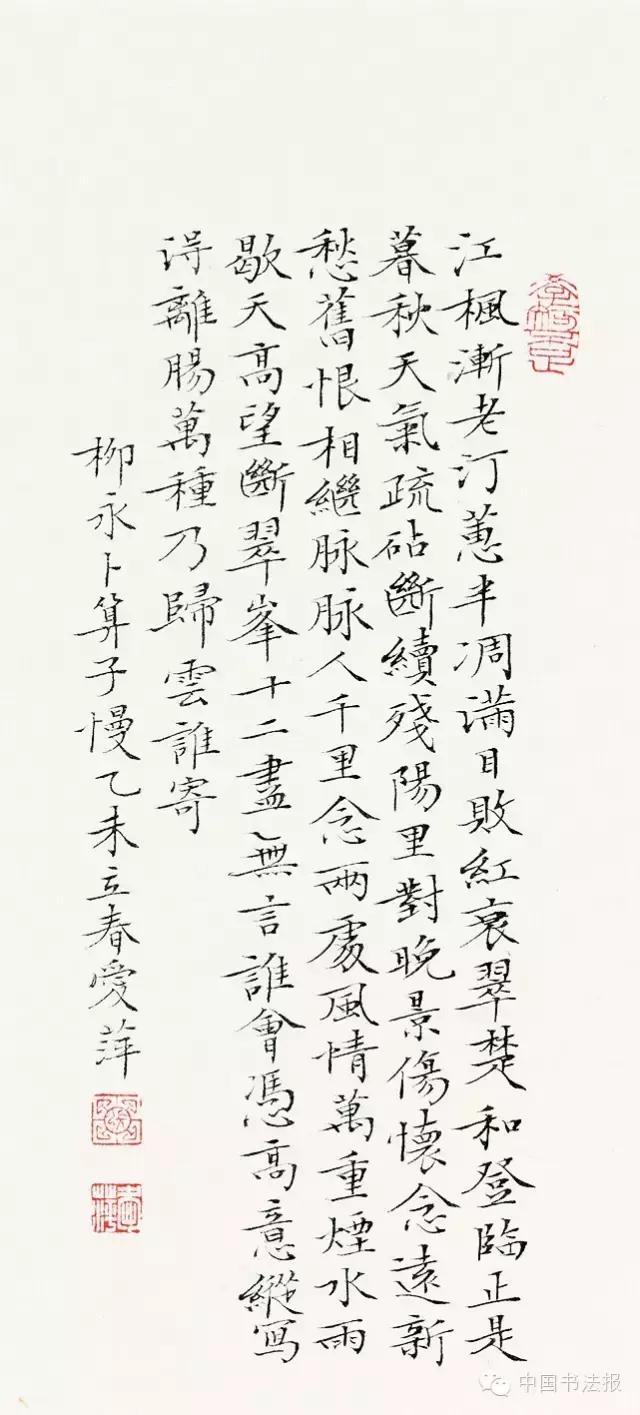 江楓漸老汀蕙半凋滿目敗紅衰翠楚和登臨正是
暮秋天氣疏砧斷續殘陽里對晚景傷懷念遠新
愁舊恨相繼脉脉人千里念兩處風情萬重煙水雨
歇天高望斷翠峯十二盡無言誰會憑高意縱寫
得離腸萬種乃歸雲誰寄
柳永卜算子慢乙未立春愛萍
中国书法报